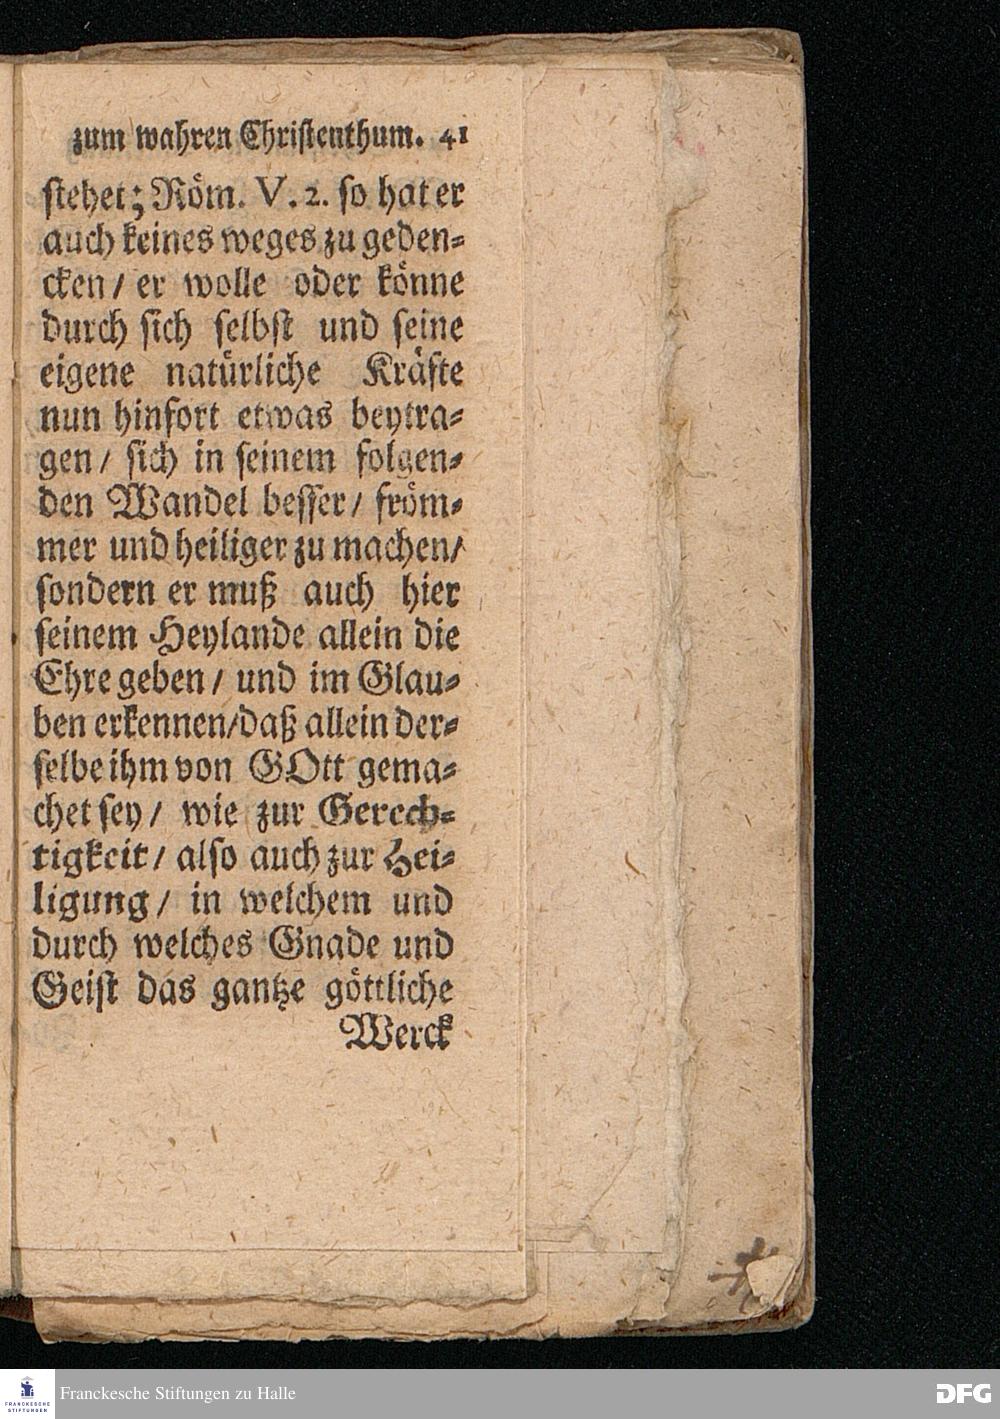 zum wahren Christenthum. 41
stehet; Röm. V. 2. so hat er
auch keines weges zu geden-
cken / er wolle oder könne
durch sich selbst und seine
eigene natürliche Kräfte
nun hinfort etwas beytra-
gen / sich in seinem folgen-
den Wandel besser / fröm-
mer und heiliger zu machen /
sondern er muß auch hier
seinem Heylande allein die
Ehre geben / und im Glau-
ben erkennen / daß allein der-
selbe ihm von GOtt gema-
chet sey / wie zur Gerech-
tigkeit / also auch zur Hei-
ligung / in welchem und
durch welches Gnade und
Geist das gantze göttliche
Werck
FRANCKESCHE
STIFTUNGEN
Franckesche Stiftungen zu Halle
DFG